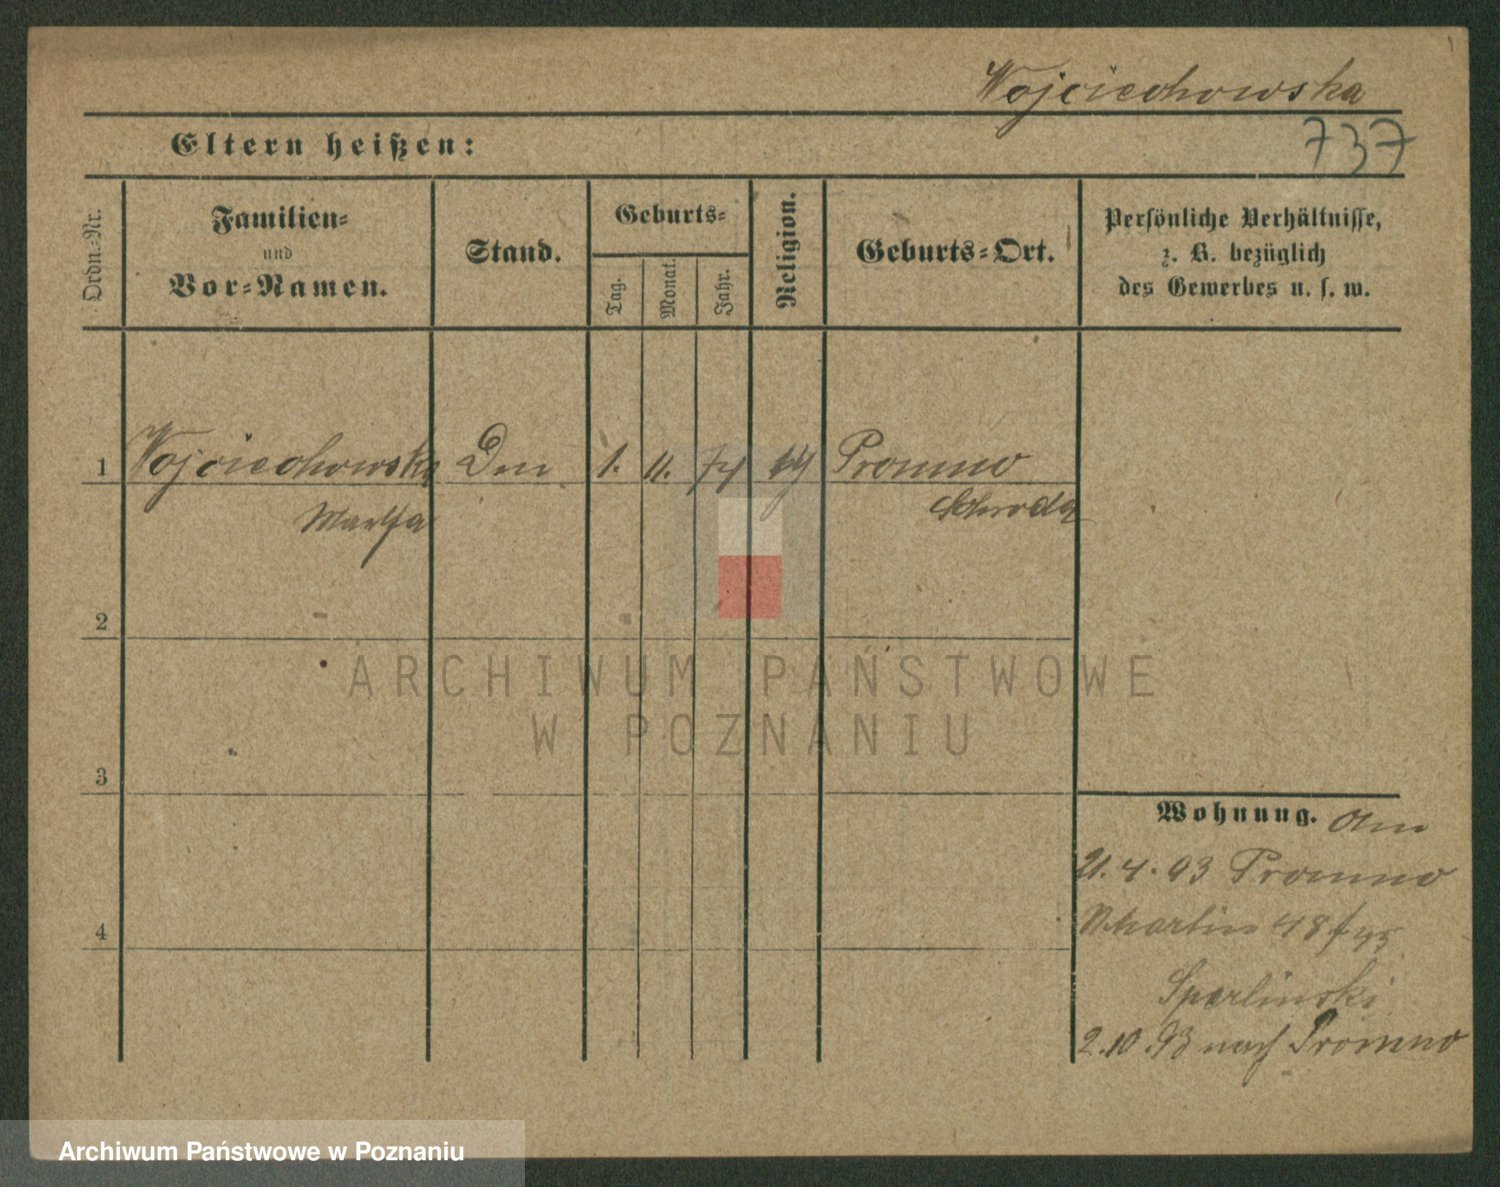 Wojciechowska
Eltern heißen:
737
Ordn.=Nr.
Familien=
und
Vor=Namen.
Stand.
Geburts=
Tag.
Monat.
Jahr.
Religion.
Geburts=Ort.
Persönliche Verhältnisse,
z. B. bezüglich
des Gewerbes u. s. w.
1 Wojciechowska 1. 11. 74 Promno
Martha Schroda
2
ARCHIWUM PAŃSTWOWE
W POZNANIU
3
Wohnung.
21.4.93 Promno
4
Martin 48
2.10.93 nach Promno
Archiwum Państwowe w Poznaniu